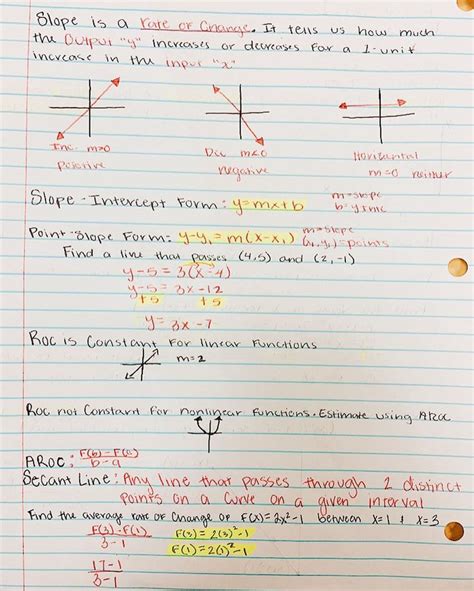 Slope is a rate of Change. It tells us how much
the Output "y" increases or decreases for a 1-unit
increase in the input "x"
Inc. m>0
positive
Dec m<0
negative
Horizontal
m=0 neither
Slope-Intercept Form: y=mx+b
m=slope
b=y-int
Point-Slope Form: y-y₁=m(x-x₁)
m=slope
(x₁,y₁)=points
Find a line that passes (4,5) and (2,-1)
y-5=3(x-4)
y-5=3x-12
+5 +5
y=3x-7
Roc is Constant For linear Functions
m=2
Roc not Constant for nonlinear functions. Estimate using ARoC
ARoC: F(b)-F(a)
b-a
Secant Line: Any line that passes through 2 distinct
points on a curve on a given interval
Find the average rate of change of F(x)=2x²-1 between x=1 & x=3
F(3)-F(1)
3-1
F(3)=2(3)²-1
F(1)=2(1)²-1
17-1
3-1